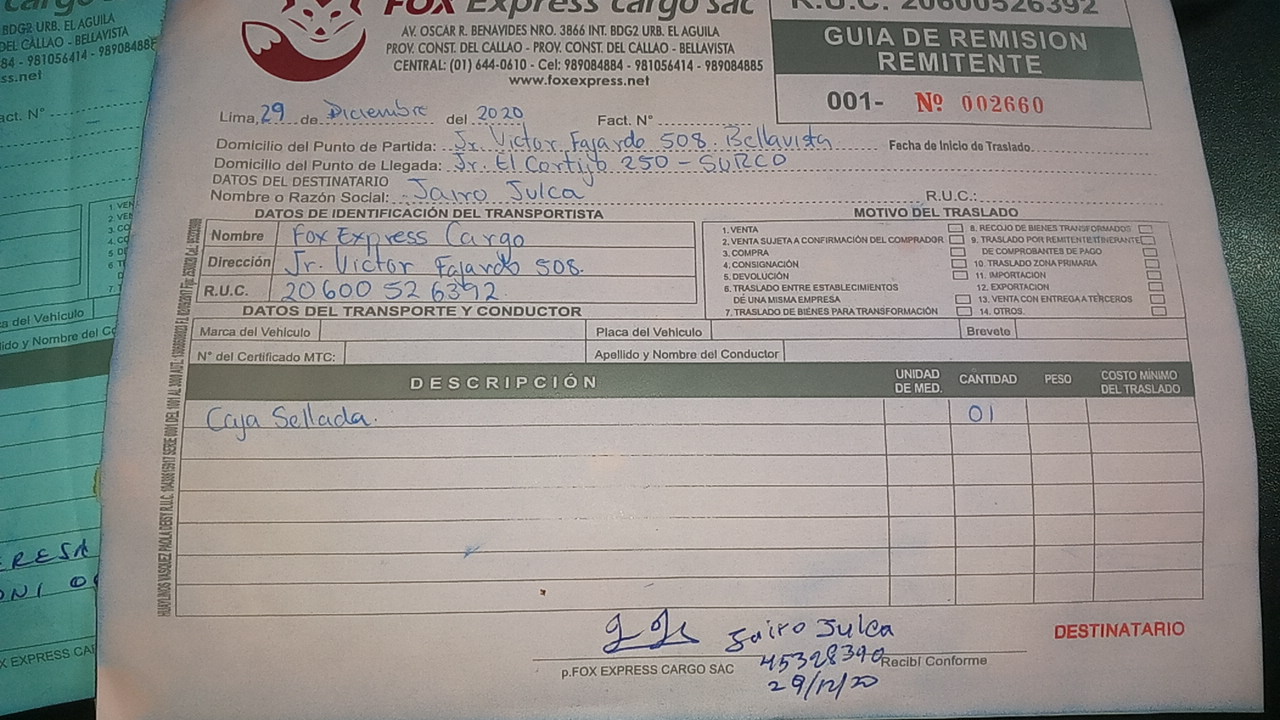 FOX Express cargo sac
AV. OSCAR R. BENAVIDES NRO. 3866 INT. BDG2 URB. EL AGUILA
PROV. CONST. DEL CALLAO - PROV. CONST. DEL CALLAO - BELLAVISTA
CENTRAL: (01) 644-0610 - Cel: 989084884 - 981056414 - 989084885
www.foxexpress.net
R.U.C. 20600526392
GUIA DE REMISION
REMITENTE
001- Nº 002660
Lima, 29 de Diciembre del 2020 Fact. N°
Domicilio del Punto de Partida: Jr. Victor Fajardo 508. Bellavista Fecha de Inicio de Traslado
Domicilio del Punto de Llegada: Jr. El Cortijo 250 - SURCO
DATOS DEL DESTINATARIO
Nombre o Razón Social: Jairo Julca R.U.C.:
DATOS DE IDENTIFICACIÓN DEL TRANSPORTISTA
Nombre Fox Express Cargo
Dirección Jr. Victor Fajardo 508.
R.U.C. 20600526392
MOTIVO DEL TRASLADO
1. VENTA
2. VENTA SUJETA A CONFIRMACIÓN DEL COMPRADOR
3. COMPRA
4. CONSIGNACIÓN
5. DEVOLUCIÓN
6. TRASLADO ENTRE ESTABLECIMIENTOS
DE UNA MISMA EMPRESA
7. TRASLADO DE BIENES PARA TRANSFORMACIÓN
8. RECOJO DE BIENES TRANSFORMADOS
9. TRASLADO POR REMITENTE ITINERANTE
DE COMPROBANTES DE PAGO
10. TRASLADO ZONA PRIMARIA
11. IMPORTACION
12. EXPORTACION
13. VENTA CON ENTREGA A TERCEROS
14. OTROS
DATOS DEL TRANSPORTE Y CONDUCTOR
Marca del Vehículo Placa del Vehículo Brevete
N° del Certificado MTC: Apellido y Nombre del Conductor
DESCRIPCIÓN UNIDAD DE MED. CANTIDAD PESO COSTO MÍNIMO DEL TRASLADO
Caja Sellada. 01
Jairo Julca
45328390
29/12/20
p.FOX EXPRESS CARGO SAC Recibí Conforme
DESTINATARIO
cargo s
BDG2 URB. EL AGUILA
DEL CALLAO - BELLAVISTA
84 - 981056414 - 98908488
ss.net
act. N°